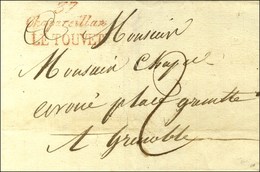 37
Chapareillan
LE TOUVET
Monsieur
Monsieur Chapui
avoué place grenette
A Grenoble
2